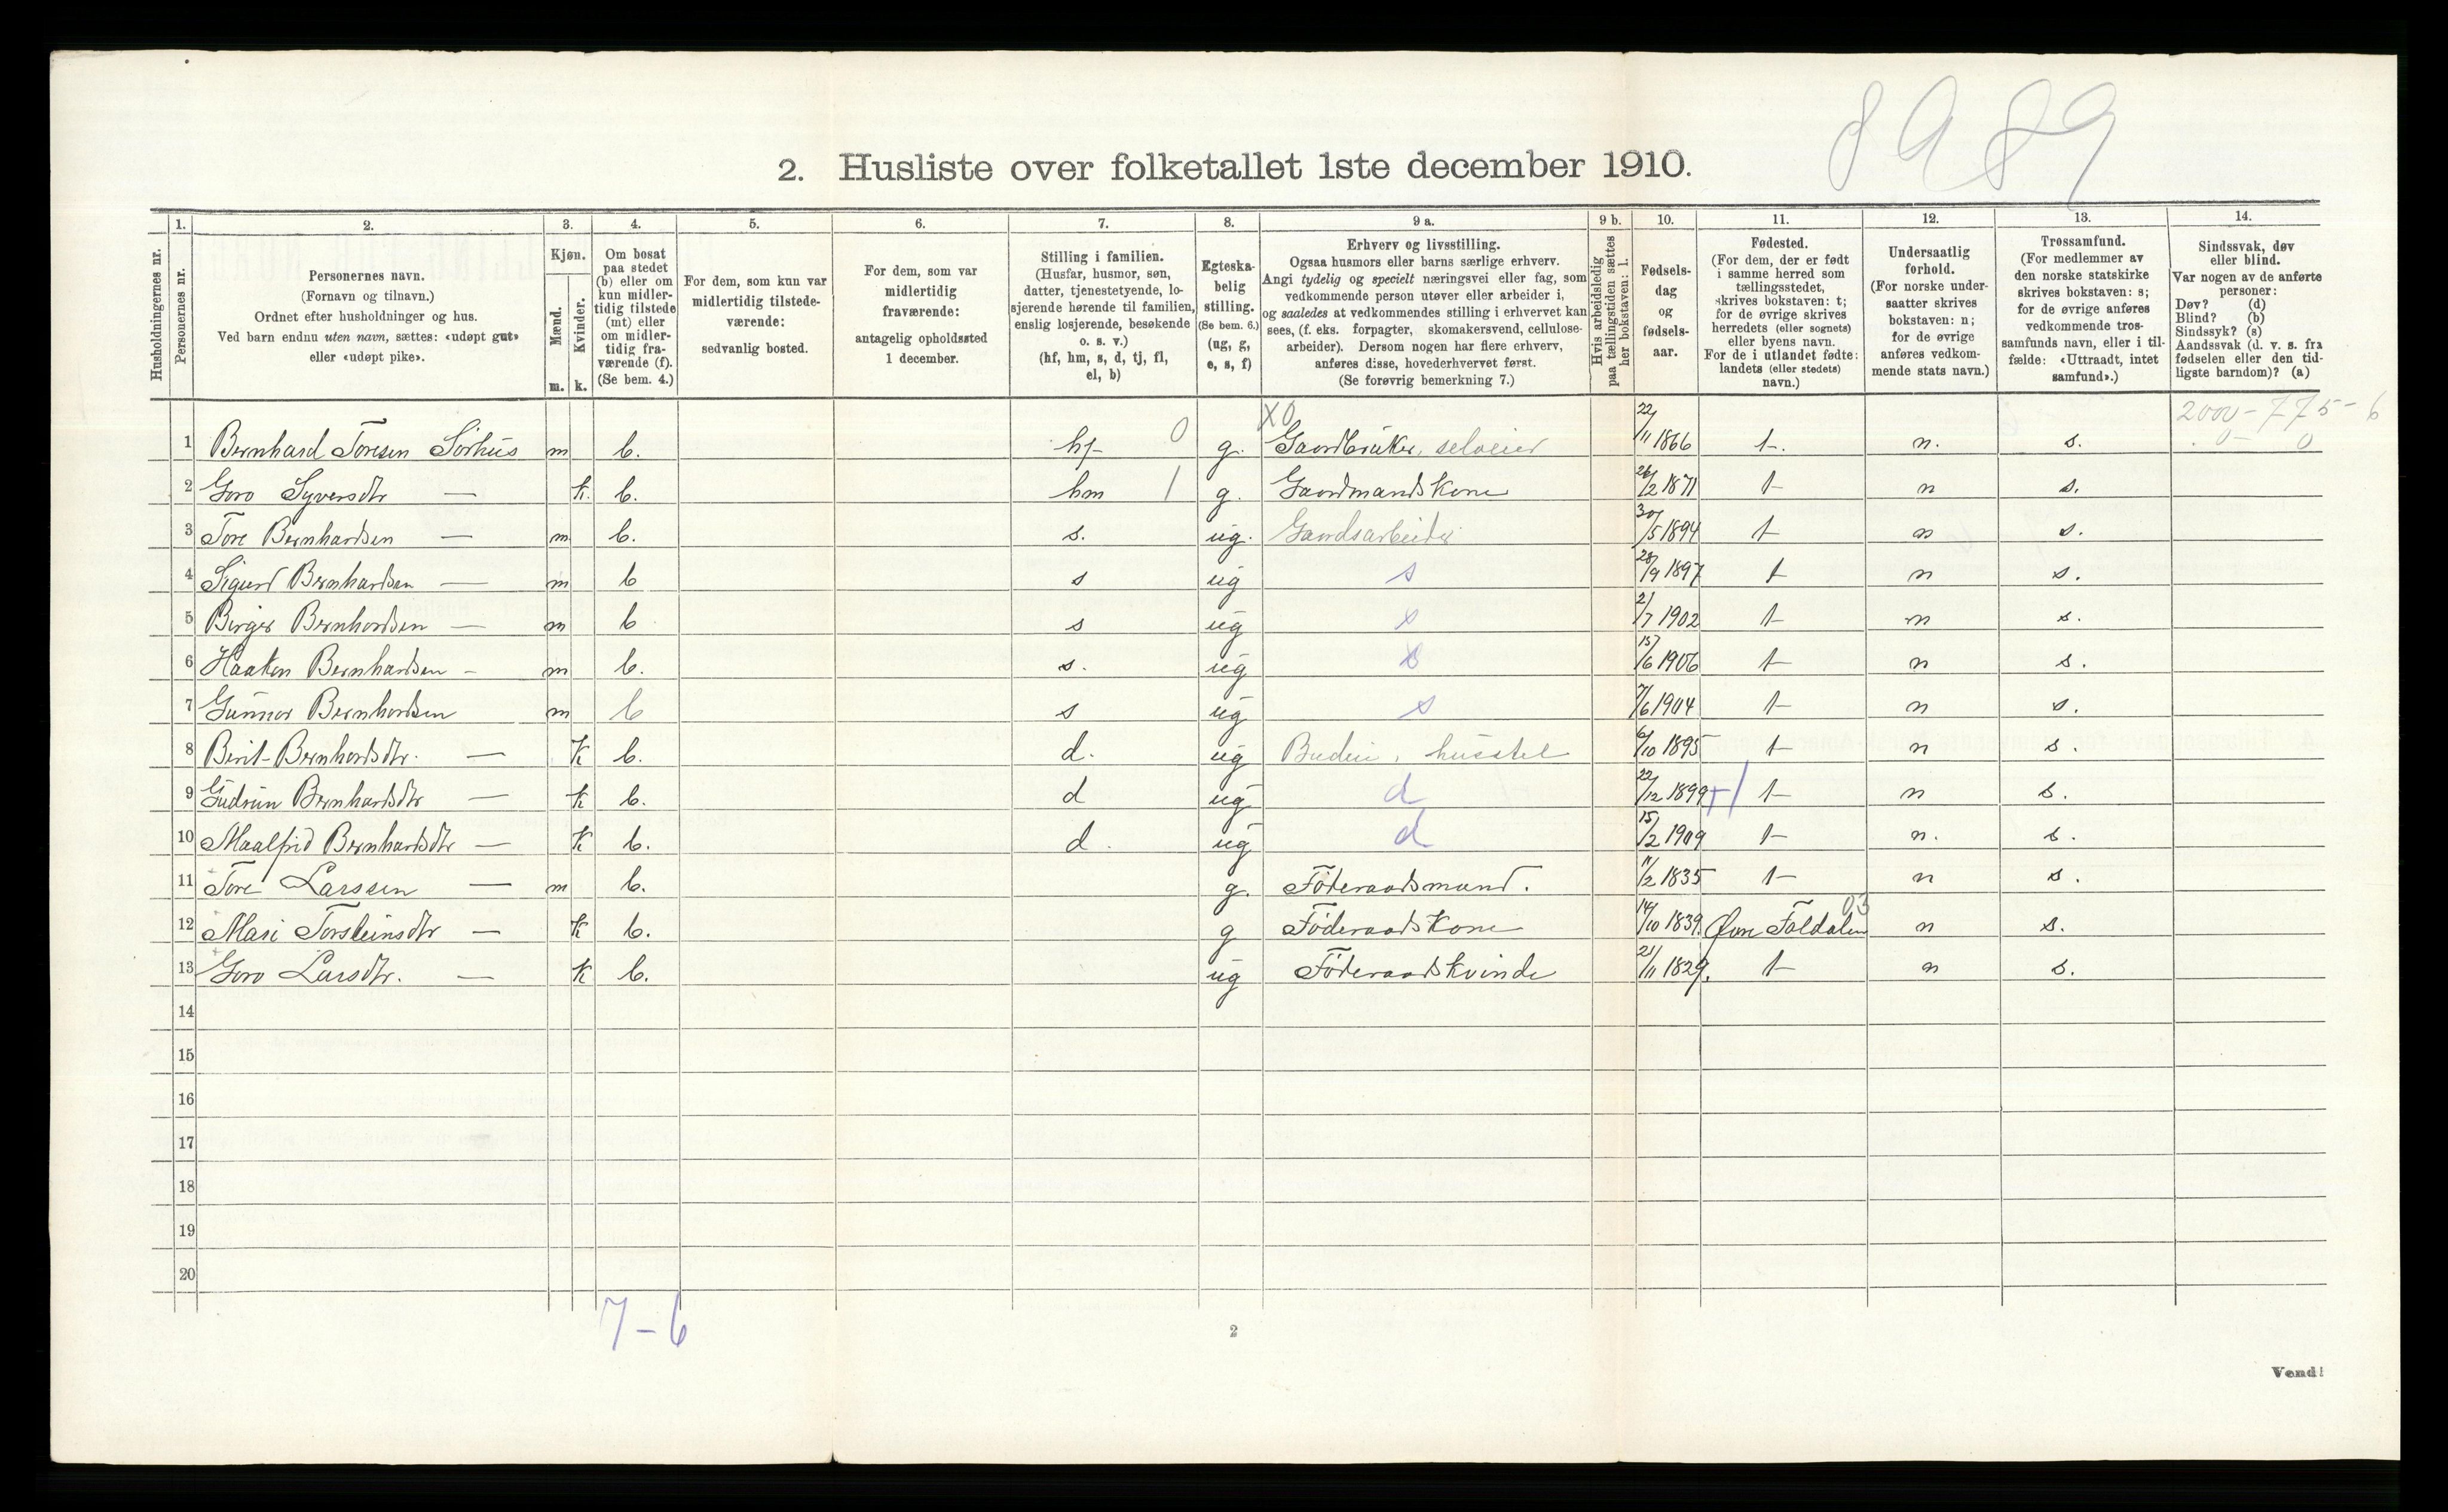 8989
2. Husliste over folketallet 1ste december 1910.
Husholdningernes nr.
1. Personernes nr.
2. Personernes navn. (Fornavn og tilnavn.) Ordnet efter husholdninger og hus. Ved barn endnu uten navn, sættes: «udøpt gut» eller «udøpt pike».
3. Kjøn. Mænd. m. Kvinder. k.
4. Om bosat paa stedet (b) eller om kun midlertidig tilstede (mt) eller om midlertidig fraværende (f). (Se bem. 4.)
5. For dem, som kun var midlertidig tilstedeværende: sedvanlig bosted.
6. For dem, som var midlertidig fraværende: antagelig opholdssted 1 december.
7. Stilling i familien. (Husfar, husmor, søn, datter, tjenestetyende, losjerende hørende til familien, enslig losjerende, besøkende o. s. v.) (hf, hm, s, d, tj, fl, el, b)
8. Egteskabelig stilling. (Se bem. 6.) (ug, g, e, s, f)
9 a. Erhverv og livsstilling. Ogsaa husmors eller barns særlige erhverv. Angi tydelig og specielt næringsvei eller fag, som vedkommende person utøver eller arbeider i, og saaledes at vedkommendes stilling i erhvervet kan sees, (f. eks. forpagter, skomakersvend, cellulosearbeider). Dersom nogen har flere erhverv, anføres disse, hovederhvervet først. (Se forøvrig bemerkning 7.)
9 b. Hvis arbeidsledig paa tællingstiden sættes her bokstaven: l.
10. Fødselsdag og fødselsaar.
11. Fødested. (For dem, der er født i samme herred som tællingsstedet, skrives bokstaven: t; for de øvrige skrives herredets (eller sognets) eller byens navn. For de i utlandet fødte: landets (eller stedets) navn.)
12. Undersaatlig forhold. (For norske undersaatter skrives bokstaven: n; for de øvrige anføres vedkommende stats navn.)
13. Trossamfund. (For medlemmer av den norske statskirke skrives bokstaven: s; for de øvrige anføres vedkommende trossamfunds navn, eller i tilfælde: «Uttraadt, intet samfund».)
14. Sindssvak, døv eller blind. Var nogen av de anførte personer: Døv? (d) Blind? (b) Sindssyk? (s) Aandssvak (d. v. s. fra fødselen eller den tidligste barndom)? (a)
X0 2000 - 775 - 6
1 Bernhard Toresen Sørhus m b. hf 0 g. Gaardbruker, selveier 22/11 1866 t. n. s. 0 - 0
2 Goro Syversdtr — k. b. hm 1 g. Gaardmandskone 26/2 1871 t n s.
3 Tore Bernhardsen — m b. s. ug. Gaardsarbeider 30/5 1894 t n s.
4 Sigurd Bernhardsen — m b s ug s 28/9 1897 t n s.
5 Birger Bernhardsen — m b s ug s 2/7 1902 t n s.
6 Haaken Bernhardsen - m b. s. ug s 15/6 1906 t n s.
7 Gunnar Bernhardsen m b s ug s 7/6 1904 t n s.
8 Berit Bernhardsdtr. — k b. d. ug Budeie, husstel 6/10 1895 t n s.
9 Gudrun Bernhardsdtr — k b. d ug d 22/12 1899 t n s.
10 Maalfrid Bernhardsdtr — k b. d. ug d 15/2 1909 t n. s.
11 Tore Larssen — m b. g. Föderaadsmand. 11/2 1835 t n s.
12 Mari Torsteinsdtr — k b. g Föderaadskone 14/10 1839 Øvre Foldalen 03 n s.
13 Goro Larsdtr. — k b. ug Föderaadskvinde 21/11 1829. t n s.
14
15
16
17
18
19
20
7 - 6
2
Vend!